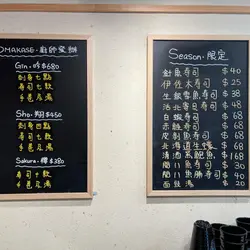 OMAKASE·廚師發辦
Gin·吟 $680
刺身七點
壽司七款
手卷及湯
Sho·翔 $450
刺身四點
壽司十款
手卷及湯
Sakura·櫻 $380
壽司十款
手卷及湯
Season·限定
針魚壽司 $40
伊佐木壽司 $25
生銀鱈魚壽司 $38
活北寄貝壽司 $48
白蝦壽司 $68
赤睦壽司 $68
皮剝魚壽司 $68
北海道生蠔 $68
清酒蒸鮑魚 $168
間八魚壽司 $30
間八魚腩壽司 $40
麵豉湯 $20